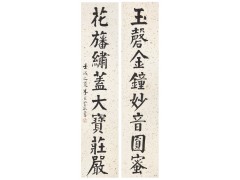 玉磬金鐘妙音圓蜜
花旛繡蓋大寶莊嚴